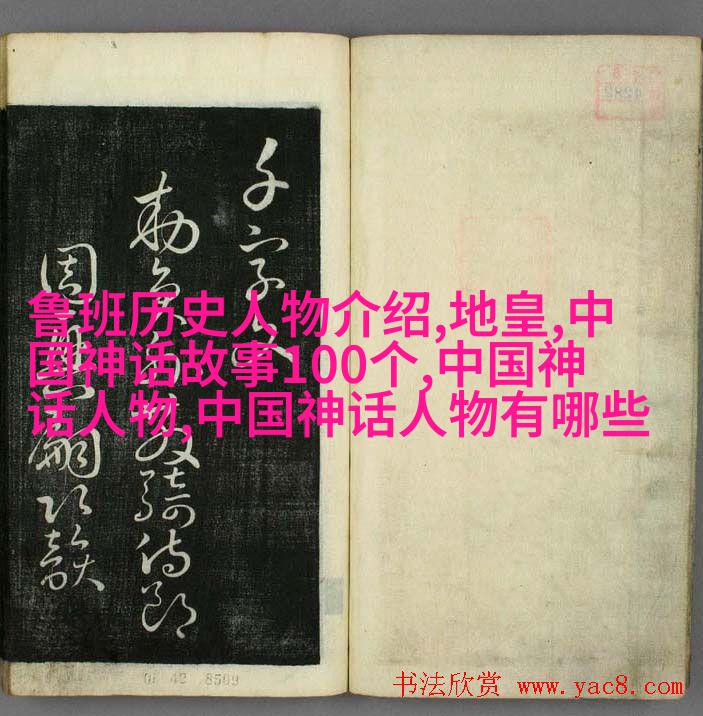 千字文
勅員外散騎侍郎
周興嗣次韻
鲁班历史人物介绍,地皇,中
国神话故事100个,中国神
话人物,中国神话人物有哪些
书法欣赏 www.yac8.com